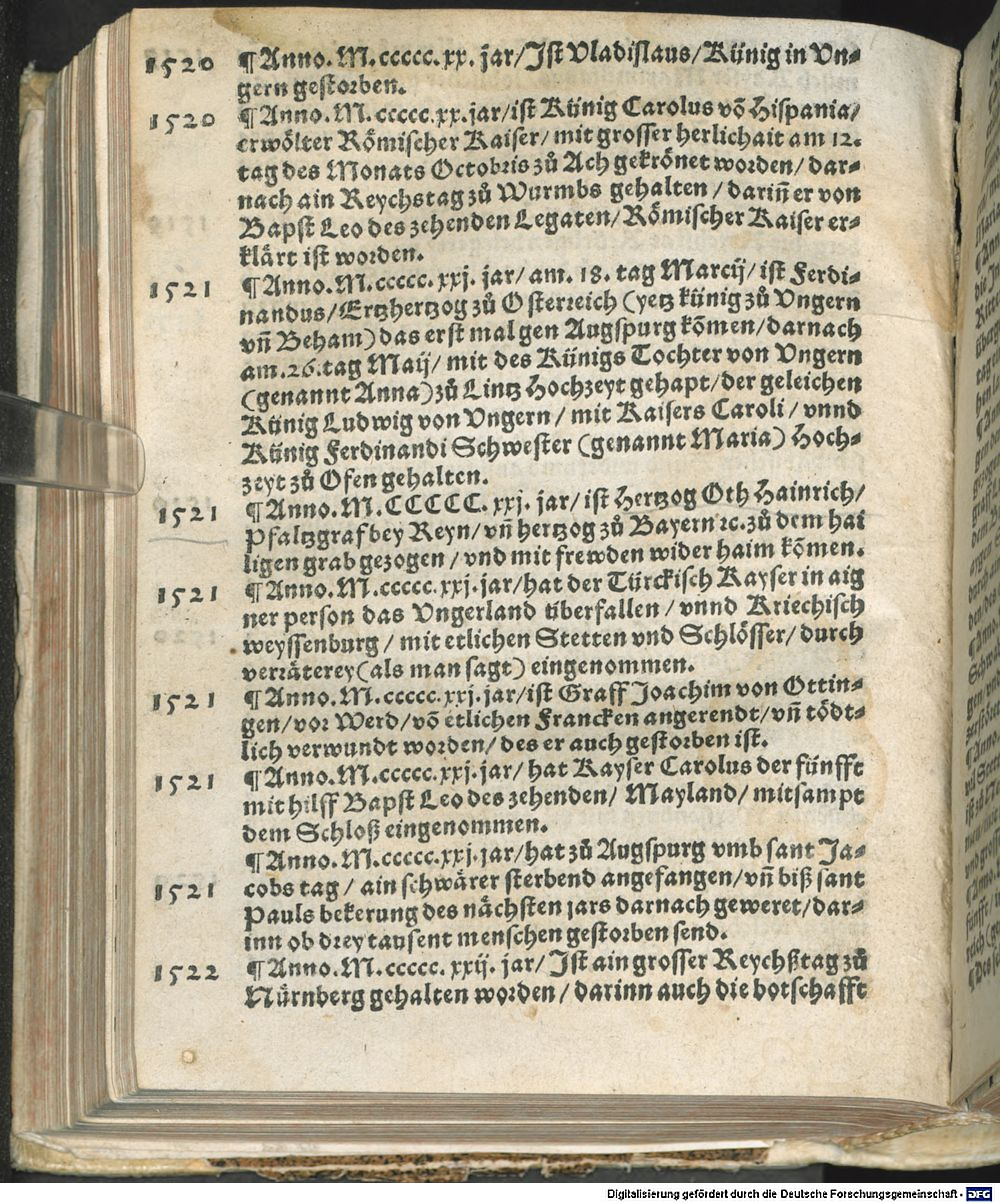 1520 ¶Anno. M. ccccc. xx. jar/Jst Vladislaus/Künig in Vn⸗
gern gestorben.
1520 ¶Anno. M. ccccc. xx. jar/ist Künig Carolus võ Hispania/
erwölter Römischer Kaiser/mit grosser herlichait am 12.
tag des Monats Octobris zů Ach gekrönet worden/dar⸗
nach ain Reychstag zů Wurmbs gehalten/dariñ er von
Bapst Leo des zehenden Legaten/Römischer Kaiser er⸗
klärt ist worden.
1521 ¶Anno. M. ccccc. xxj. jar/am. 18. tag Marcij/ist Ferdi⸗
nandus/Ertzhertzog zů Osterreich (yetz künig zů Vngern
vñ Beham) das erst mal gen Augspurg kõmen/darnach
am. 26. tag Maij/mit des Künigs Tochter von Vngern
(genannt Anna) zů Lintz Hochzeyt gehapt/der geleichen
Künig Ludwig von Vngern/mit Kaisers Caroli/vnnd
Künig Ferdinandi Schwester (genannt Maria) Hoch⸗
zeyt zů Ofen gehalten.
1521 ¶Anno. M. CCCCC. xxj. jar/ist Hertzog Oth Hainrich/
Pfaltzgraf bey Reyn/vñ hertzog zů Bayern ꝛc. zů dem hai
ligen grab gezogen/vnd mit frewden wider haim kõmen.
1521 ¶Anno. M. ccccc. xxj. jar/hat der Türckisch Kayser in aig
ner person das Vngerland überfallen/vnnd Kriechisch
weyssenburg/mit etlichen Stetten vnd Schlösser/durch
verräterey (als man sagt) eingenommen.
1521 ¶Anno. M. ccccc. xxj. jar/ist Graff Joachim von Otting⸗
gen/vor Werd/võ etlichen Francken angerendt/vñ tödt⸗
lich verwundt worden/des er auch gestorben ist.
1521 ¶Anno. M. ccccc. xxj. jar/hat Kayser Carolus der fünfft
mit hilff Bapst Leo des zehenden/Mayland/mitsampt
dem Schloß eingenommen.
¶Anno. M. ccccc. xxj. jar/hat zů Augspurg vmb sant Ja⸗
1521 cobs tag/ain schwärer sterbend angefangen/vñ biß sant
Pauls bekerung des nächsten jars darnach geweret/dar⸗
inn ob drey tausent menschen gestorben send.
1522 ¶Anno. M. ccccc. xxij. jar/Jst ain grosser Reychßtag zů
Nürnberg gehalten worden/darinn auch die botschafft
Digitalisierung gefördert durch die Deutsche Forschungsgemeinschaft - DFG